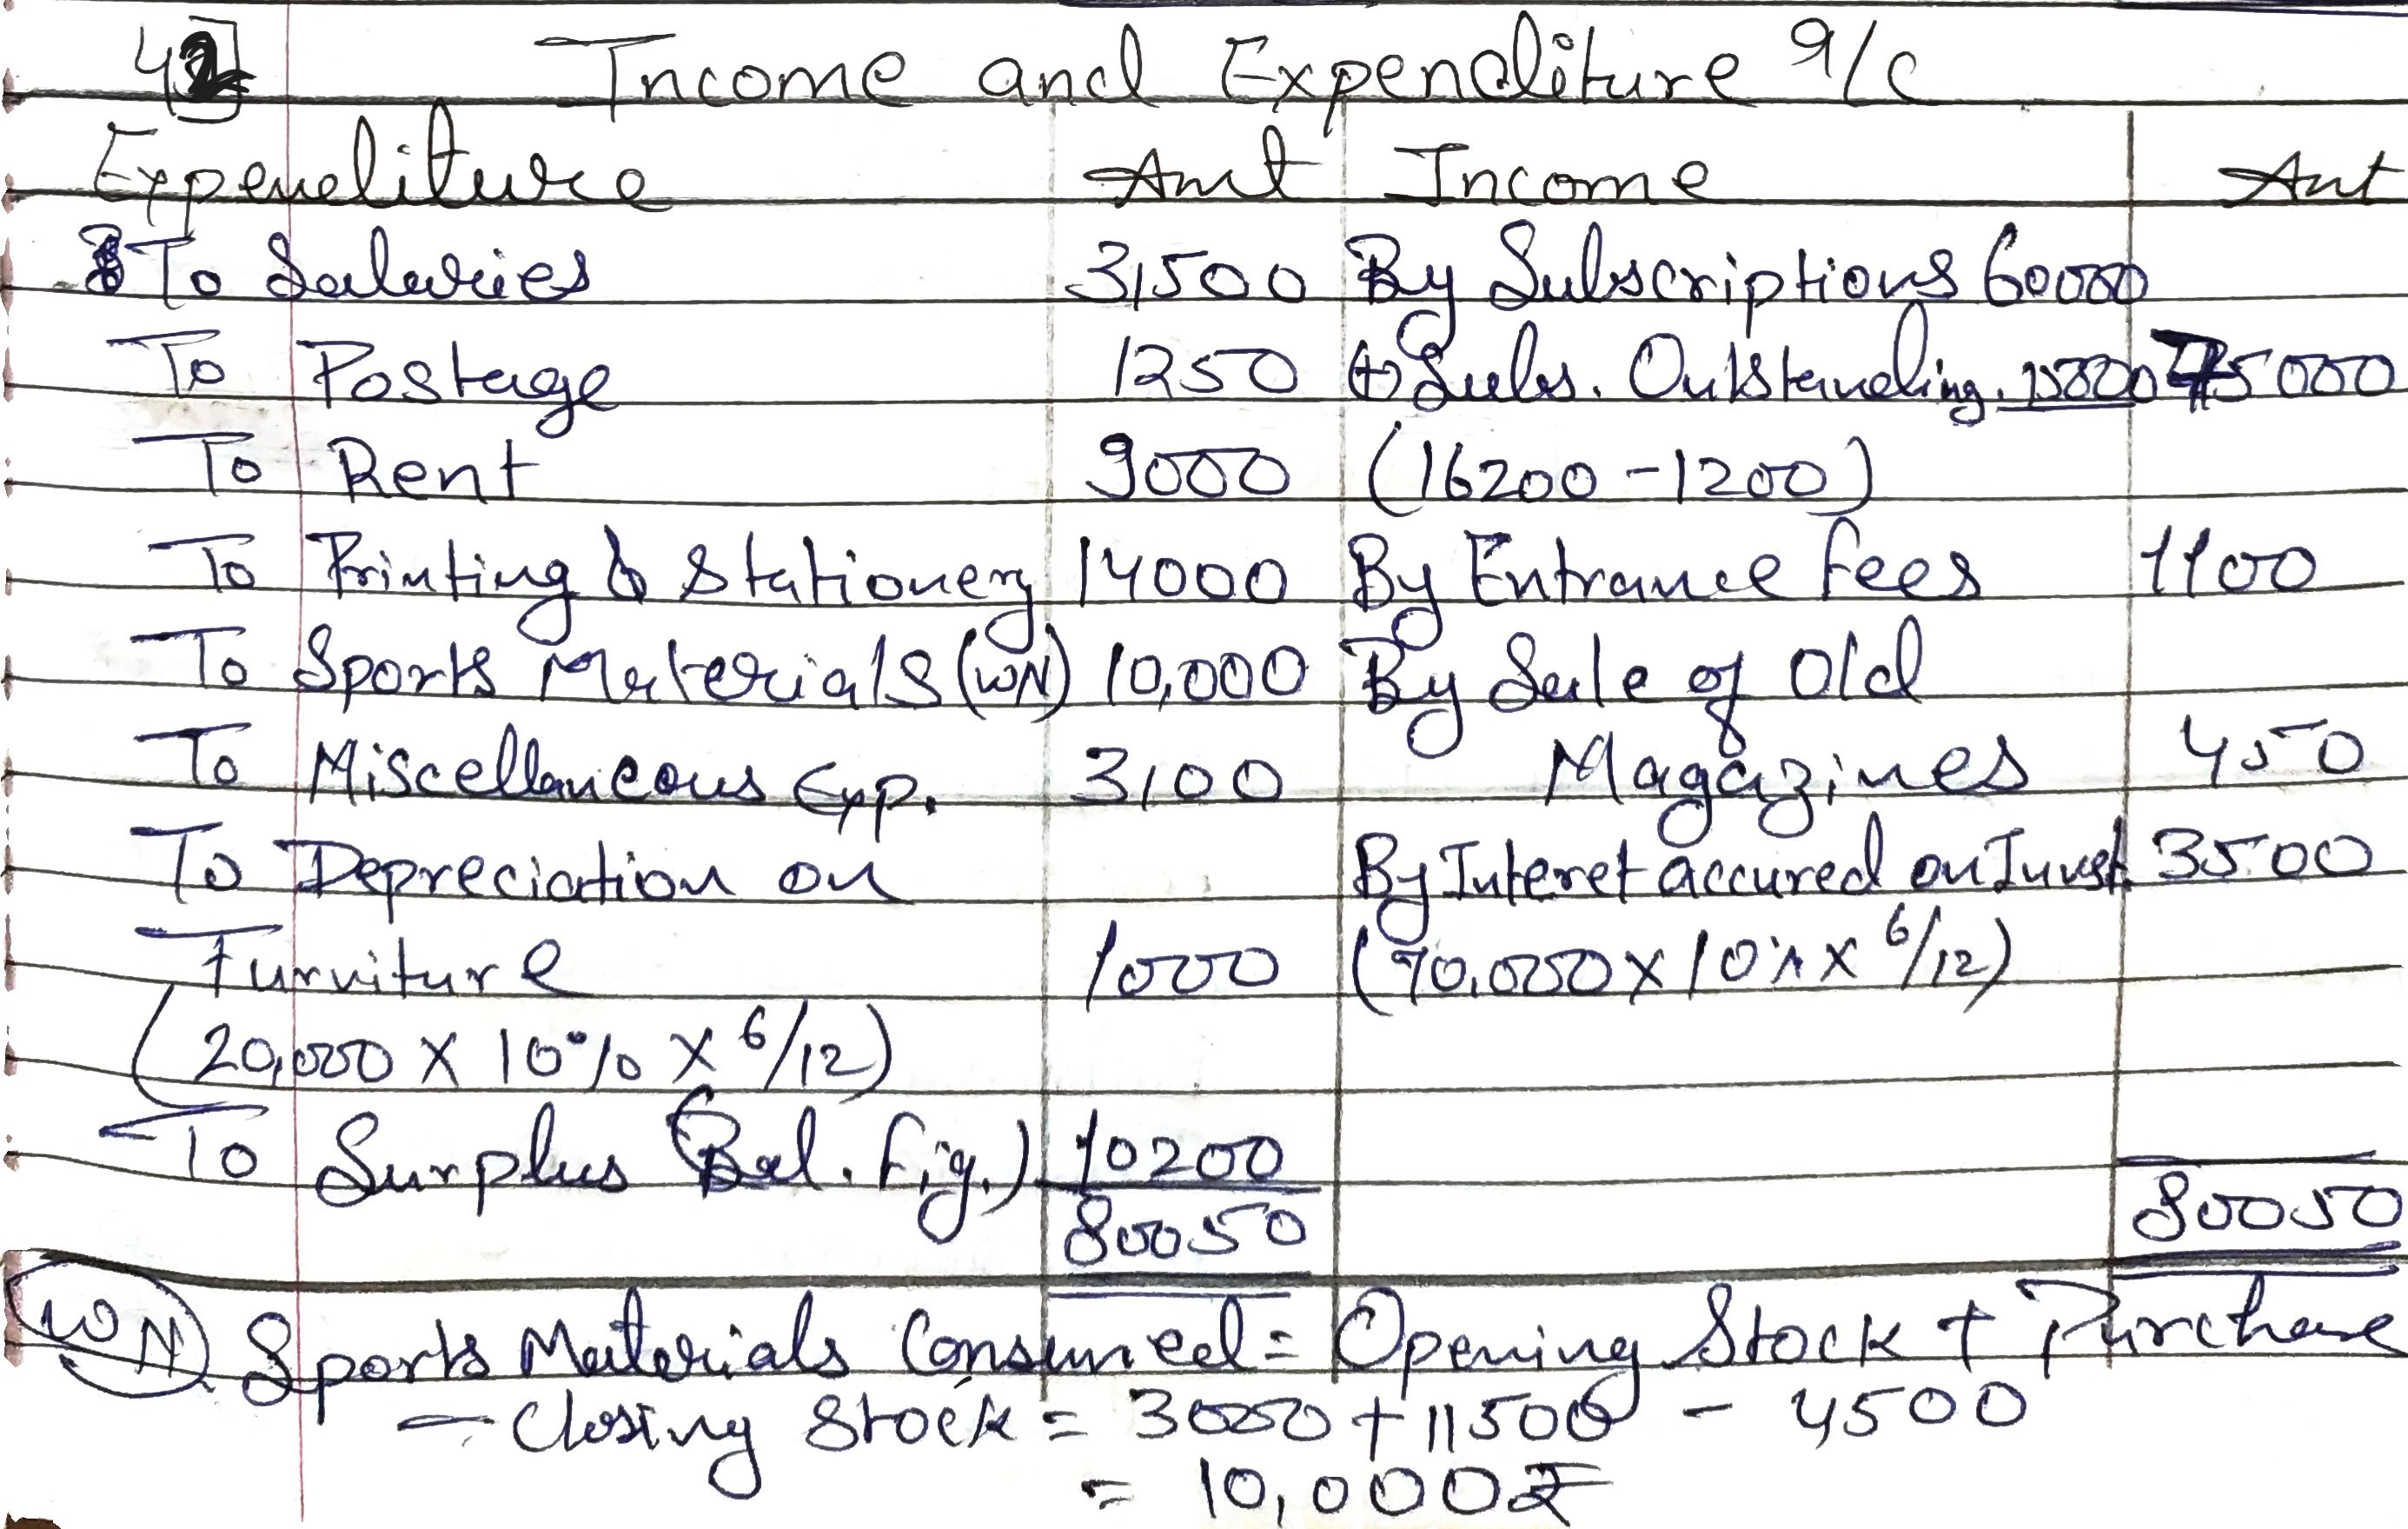 42 Income and Expenditure a/c
Expenditure Amt Income Amt
To Salaries 31500 By Subscriptions 60000
To Postage 1250 (+) Subs. Outstanding. 15000 75000
To Rent 9000 (16200-1200)
To Printing & Stationery 14000 By Entrance Fees 1100
To Sports Materials (WN) 10,000 By Sale of Old
To Miscellaneous Exp. 3100 Magazines 450
To Depreciation on By Interet accured on Invst. 3500
Furniture 1000 (70,000 x 10% x 6/12)
(20,000 x 10% x 6/12)
To Surplus (Bal. Fig.) 10200
80050 80050
WN Sports Materials Consumed = Opening Stock + Purchase
- Closing Stock = 3000 + 11500 - 4500
= 10,000₹